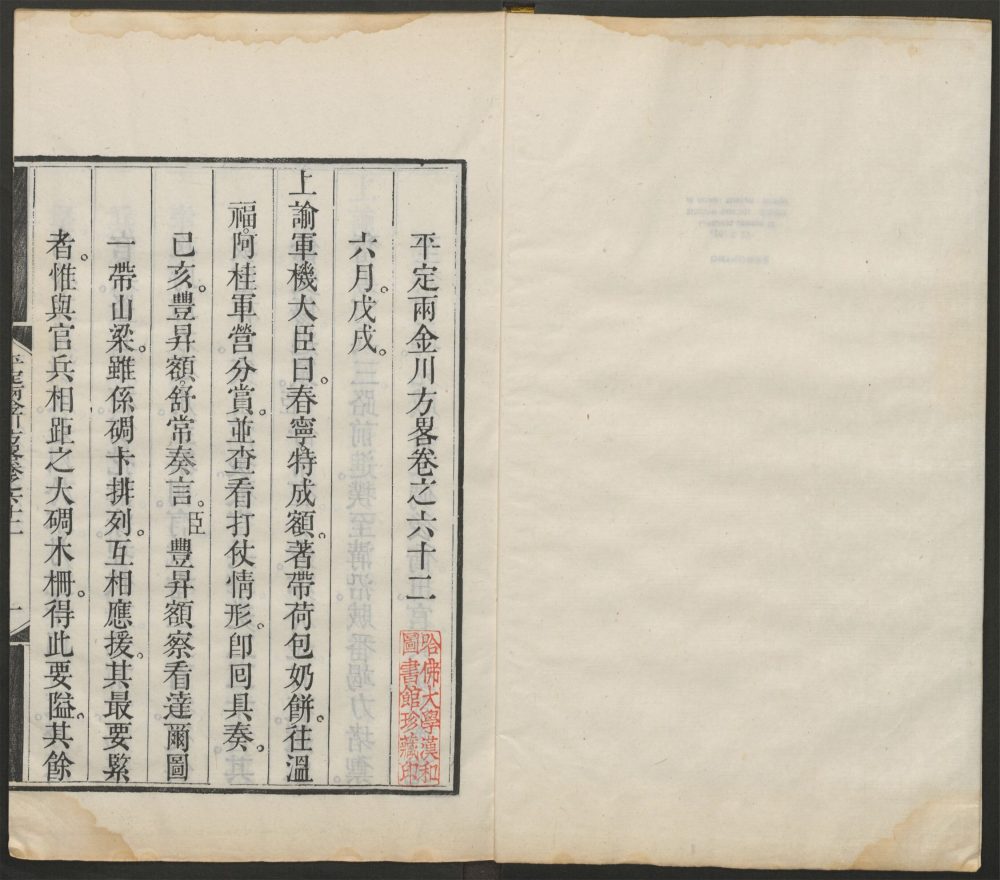 平定兩金川方畧卷之六十二
哈佛大學漢和
圖書館珍藏印
六月。戊戌。
上諭軍機大臣曰。春寧。特成額。著帶荷包奶餅。往溫
福。阿桂軍營分賞。並查看打仗情形。卽囘具奏。
已亥。豐昇額。舒常奏言。臣豐昇額察看達爾圖
一帶山梁。雖係碉卡排列。互相應援。其最要緊
者。惟與官兵相距之大碉木柵。得此要隘。其餘
平定兩金川方畧卷之六十二 一